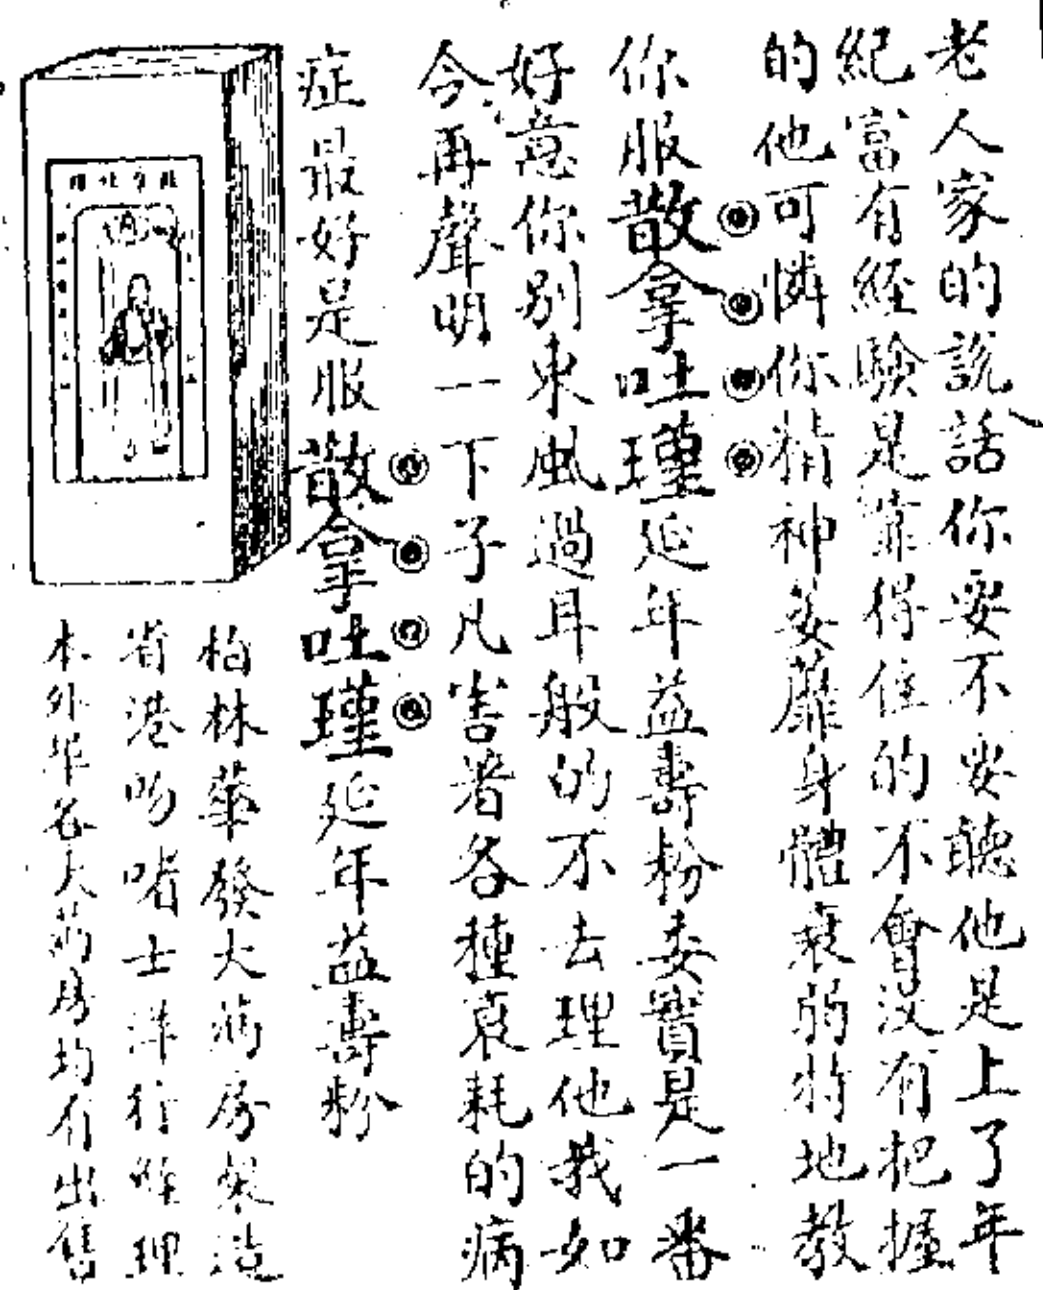 老人家的說話你要不要聽他是上了年
紀富有經驗是靠得住的不會沒有把握
的他可憐你精神萎靡身體衰弱特地教
你服散拿吐瑾延年益壽粉委實是一番
好意你別東風過耳般的不去理他我如
今再聲明一下子凡害著各種衰耗的病
症最好是服散拿吐瑾延年益壽粉
柏林華發大藥房製造
省港吻啫士洋行經理
本外埠各大药房均有出售